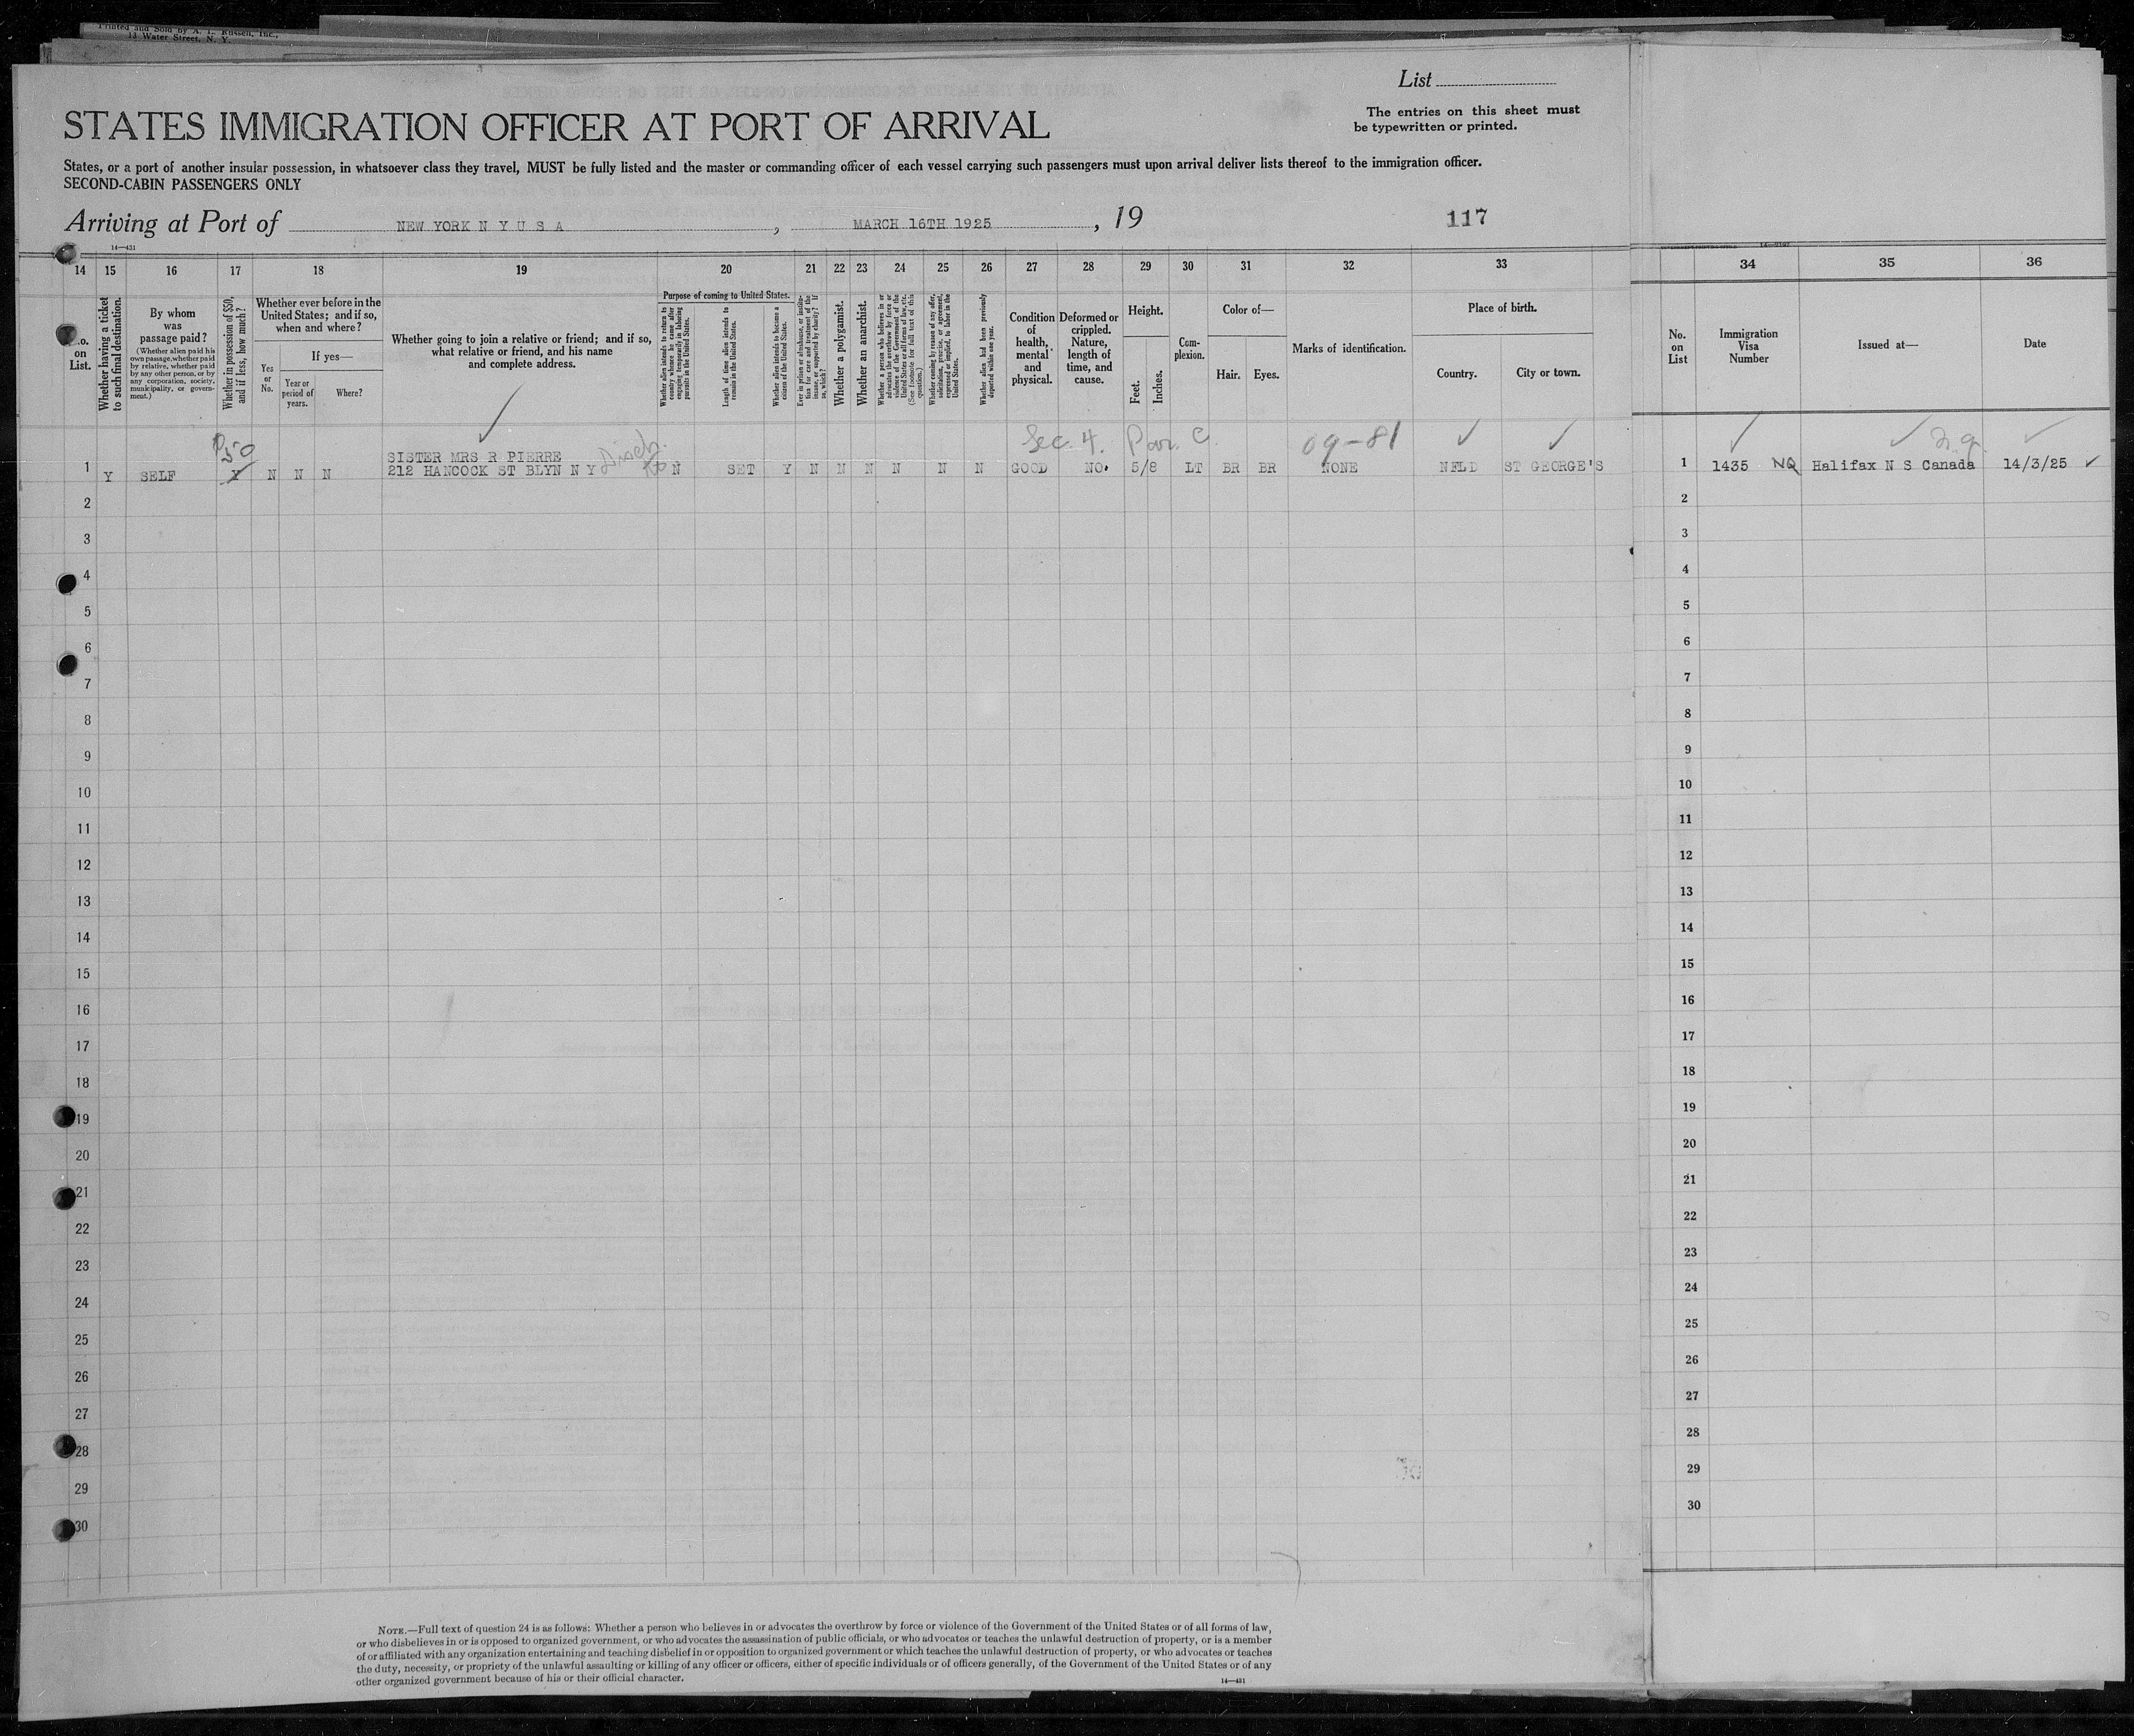 Printed and Sold by A. L. Russell, Inc.,
13 Water Street, N. Y.
List
The entries on this sheet must
be typewritten or printed.
STATES IMMIGRATION OFFICER AT PORT OF ARRIVAL
States, or a port of another insular possession, in whatsoever class they travel, MUST be fully listed and the master or commanding officer of each vessel carrying such passengers must upon arrival deliver lists thereof to the immigration officer.
SECOND-CABIN PASSENGERS ONLY
Arriving at Port of NEW YORK N Y U S A , MARCH 16TH 1925 , 19
117
14—431
14 15 16 17 18 19 20 21 22 23 24 25 26 27 28 29 30 31 32 33 34 35 36
No. on List.
Whether having a ticket to such final destination.
By whom was passage paid?
(Whether alien paid his own passage, whether paid by relative, whether paid by any other person, or by any corporation, society, municipality, or government.)
Whether in possession of $50, and if less, how much?
Whether ever before in the United States; and if so, when and where?
Yes or No.
If yes—
Year or period of years.
Where?
Whether going to join a relative or friend; and if so, what relative or friend, and his name and complete address.
Purpose of coming to United States.
Whether alien intends to return to country whence he came after engaging temporarily in laboring pursuits in the United States.
Length of time alien intends to remain in the United States.
Whether alien intends to become a citizen of the United States.
Ever in prison or almshouse, or institution for care and treatment of the insane, or supported by charity? If so, which?
Whether a polygamist.
Whether an anarchist.
Whether a person who believes in or advocates the overthrow by force or violence of the Government of the United States or all forms of law, etc. (See footnote for full text of this question.)
Whether coming by reason of any offer, solicitation, promise, or agreement, expressed or implied, to labor in the United States.
Whether alien had been previously deported within one year.
Condition of health, mental and physical.
Deformed or crippled. Nature, length of time, and cause.
Height.
Feet.
Inches.
Complexion.
Color of—
Hair.
Eyes.
Marks of identification.
Place of birth.
Country.
City or town.
No. on List
Immigration Visa Number
Issued at—
Date
50
Sec. 4. Par. C
09-81
n.q.
SISTER MRS R PIERRE
1 Y SELF Y N N N 212 HANCOCK ST BLYN N Y N SET Y N N N N N N GOOD NO. 5/8 LT BR BR NONE NFLD ST GEORGE'S 1 1435 NQ Halifax N S Canada 14/3/25
2 2
3 3
4 4
5 5
6 6
7 7
8 8
9 9
10 10
11 11
12 12
13 13
14 14
15 15
16 16
17 17
18 18
19 19
20 20
21 21
22 22
23 23
24 24
25 25
26 26
27 27
28 28
29 29
30 30
NOTE.—Full text of question 24 is as follows: Whether a person who believes in or advocates the overthrow by force or violence of the Government of the United States or of all forms of law,
or who disbelieves in or is opposed to organized government, or who advocates the assassination of public officials, or who advocates or teaches the unlawful destruction of property, or is a member
of or affiliated with any organization entertaining and teaching disbelief in or opposition to organized government or which teaches the unlawful destruction of property, or who advocates or teaches
the duty, necessity, or propriety of the unlawful assaulting or killing of any officer or officers, either of specific individuals or of officers generally, of the Government of the United States or of any
other organized government because of his or their official character.
14—431